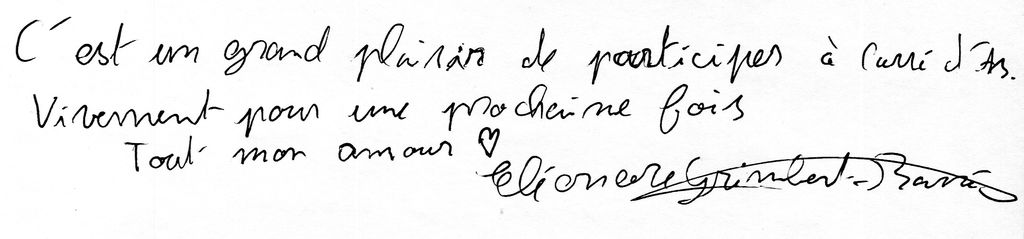 C'est un grand plaisir de participer à Carré d'As.
Vivement pour une prochaine fois
Tout mon amour ♡
Eléonore Grimbert-Barré